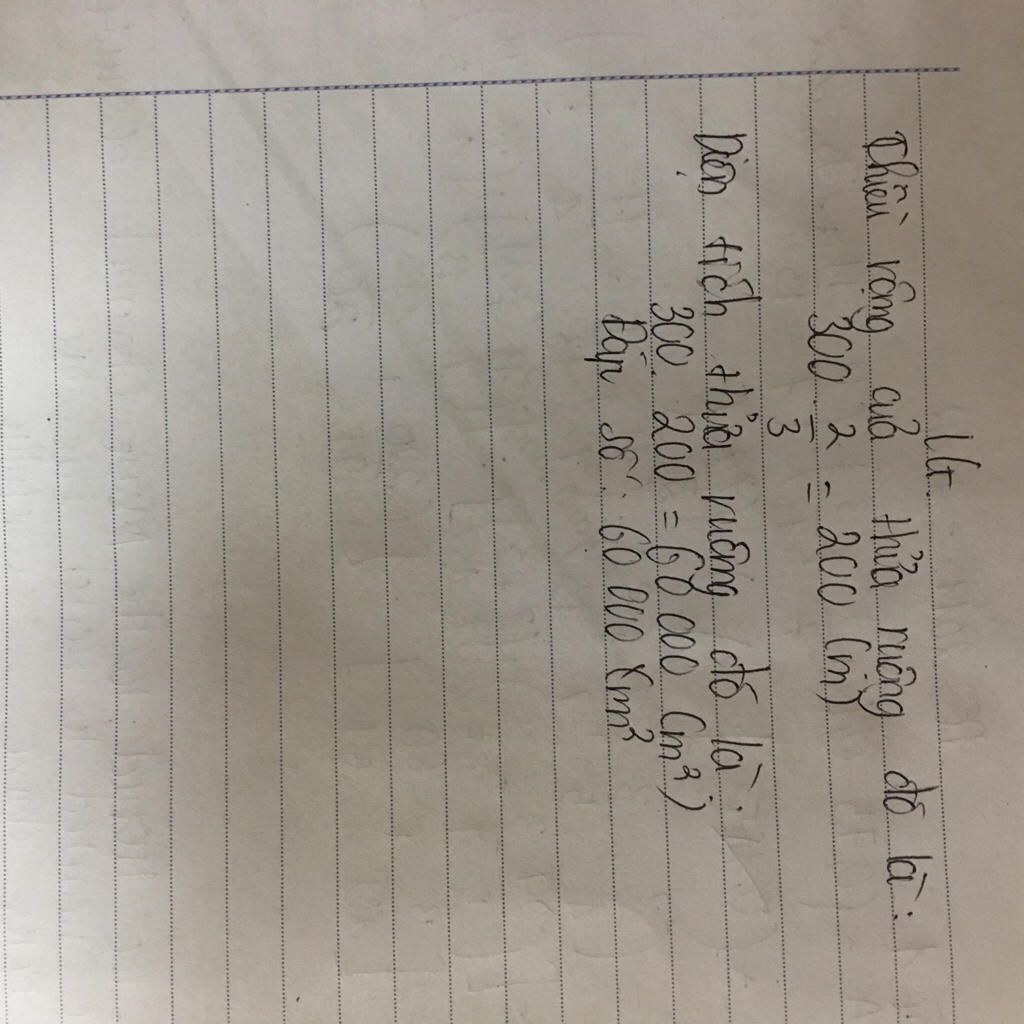 Chiều rộng của thửa ruộng đó là:
300 . 2/3 = 200 (m)
Diện tích thửa ruộng đó là:
300 . 200 = 60 000 (m²)
Đáp số: 60 000 (m²